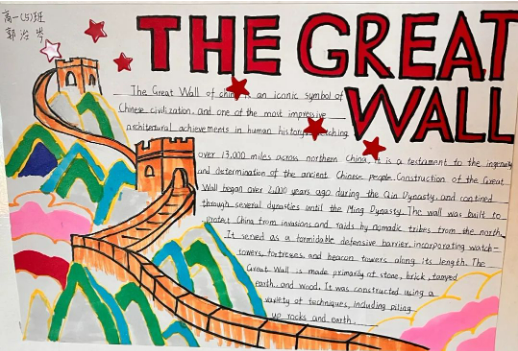 高一(5)班
郭
THE GREAT
WALL
The Great Wall of china is an iconic symbol of
Chinese civilization, and one of the most impressive
architectural achievements in human history
over 13,000 miles across northern China, it is a testament to the ingenuity
and determination of the ancient Chinese people. Construction of the Great
Wall began over 2,000 years ago during the Qin Dynasty and contined
through several dynasties until the Ming Dynasty. The wall was built to
protect China from invasions and raids by nomadic tribes from the north
It served as a formidable defensive barrier, incorporating watch-
towers, fortresses, and beacon towers along its length. The
Great Wall is made primarily of stone, brick,
earth, and wood. It was constructed using a
variety of techniques, including piling
up rocks and earth